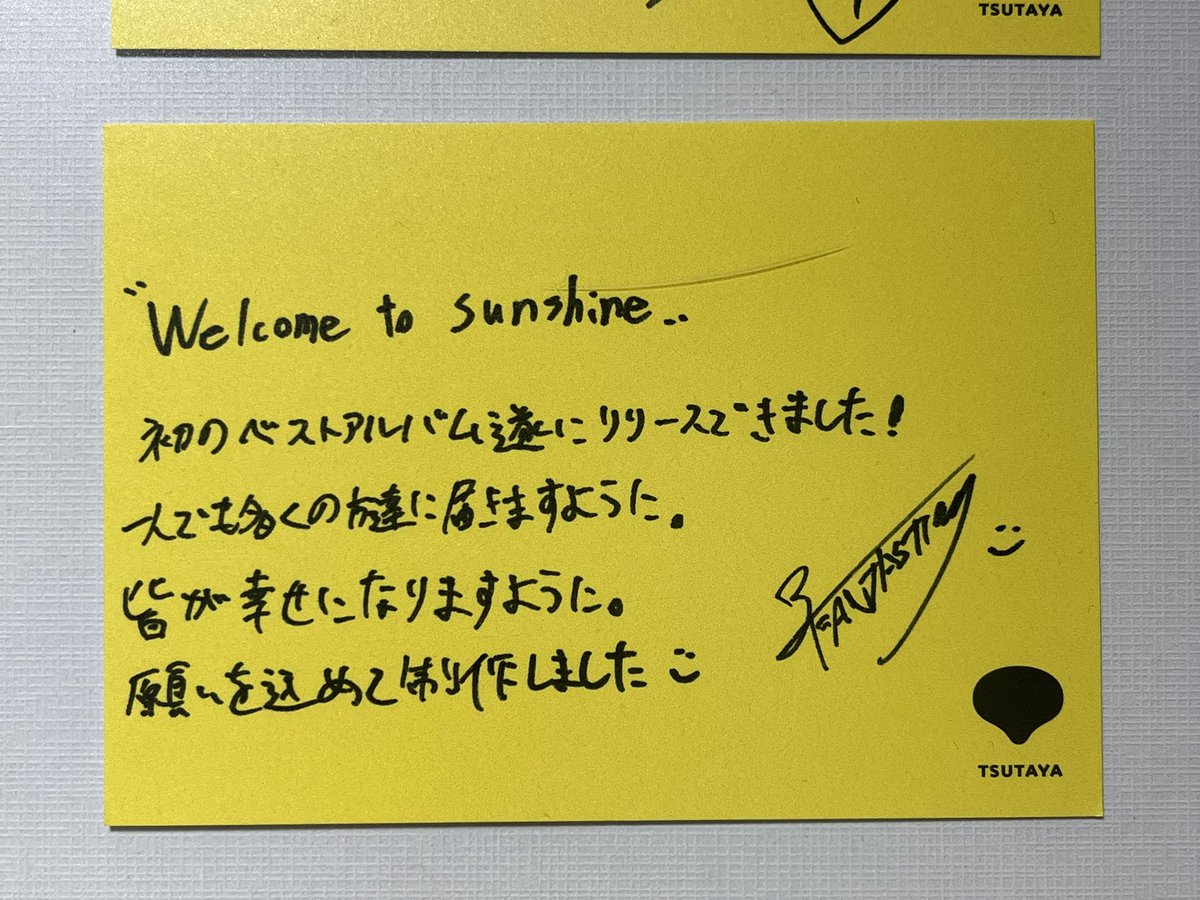 TSUTAYA
"Welcome to sunshine"
初のベストアルバム遂にリリースできました!
一人でも多くの友達に届きますように。
皆が幸せになりますように。
願いを込めて制作しました
TSUTAYA